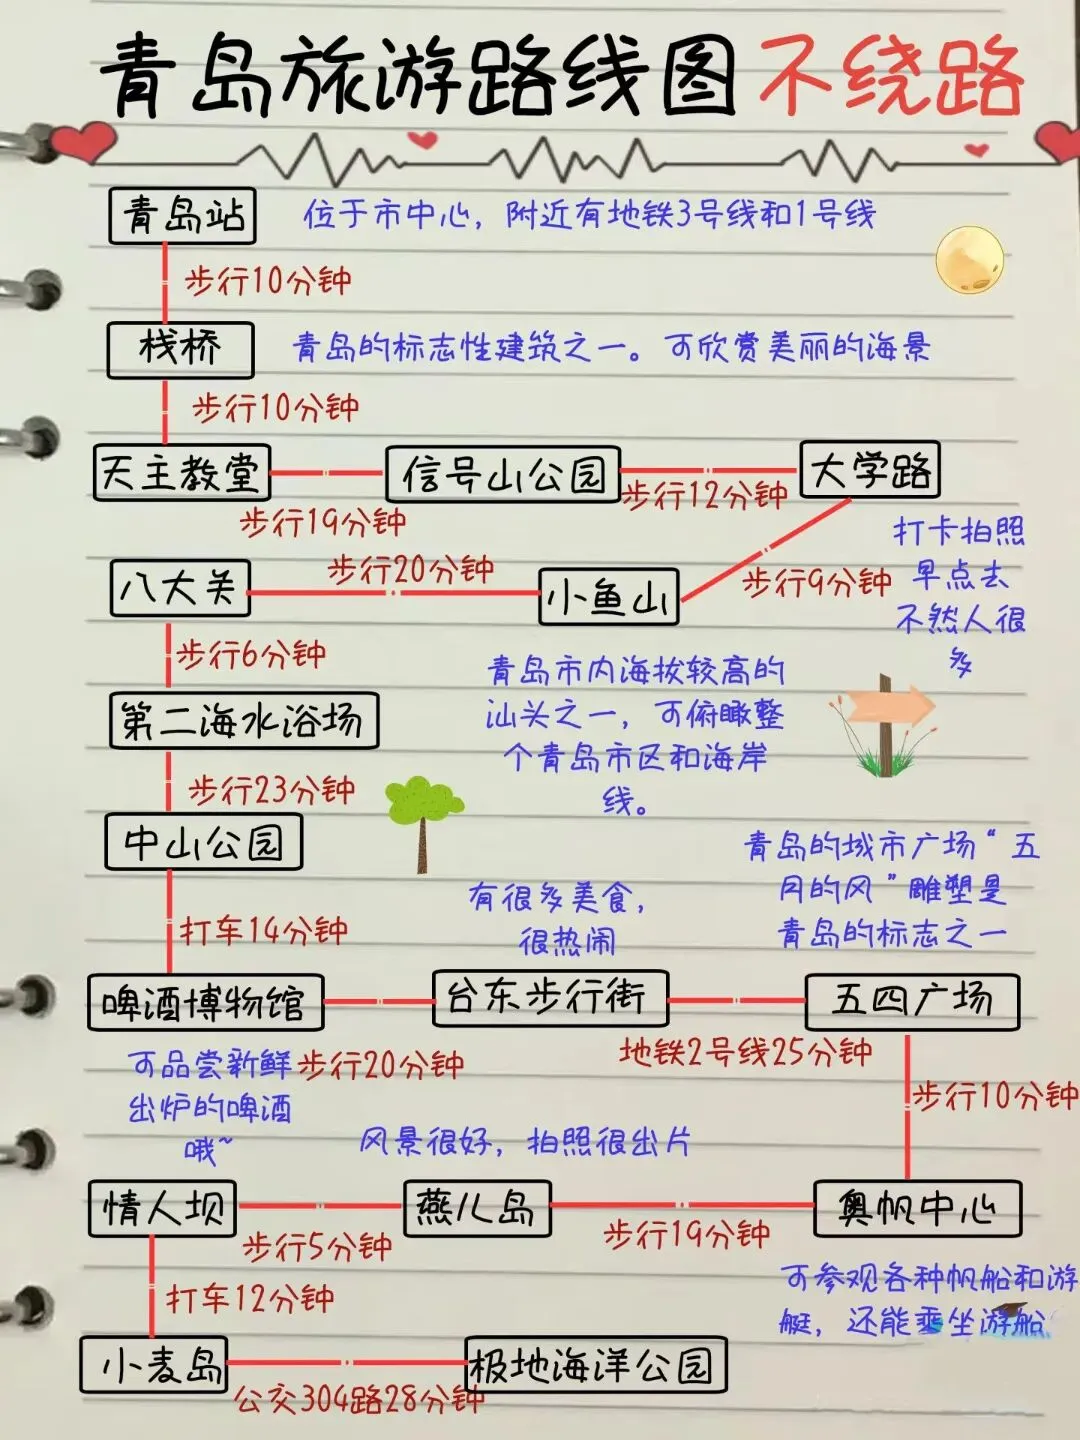 青岛旅游路线图 不绕路
青岛站
位于市中心，附近有地铁3号线和1号线
步行10分钟
栈桥
青岛的标志性建筑之一。可欣赏美丽的海景
步行10分钟
天主教堂
信号山公园
大学路
步行19分钟
步行12分钟
打卡拍照
早点去
不然人很
多
八大关
步行20分钟
小鱼山
步行9分钟
步行6分钟
青岛市内海拔较高的
汕头之一，可俯瞰整
个青岛市区和海岸
线。
第二海水浴场
步行23分钟
中山公园
青岛的城市广场“五
月的风”雕塑是
青岛的标志之一
有很多美食，
很热闹
打车14分钟
啤酒博物馆
台东步行街
五四广场
可品尝新鲜
出炉的啤酒
哦~
步行20分钟
地铁2号线25分钟
步行10分钟
风景很好，拍照很出片
情人坝
燕儿岛
奥帆中心
步行5分钟
步行19分钟
可参观各种帆船和游
艇，还能乘坐游船
打车12分钟
小麦岛
极地海洋公园
公交304路28分钟